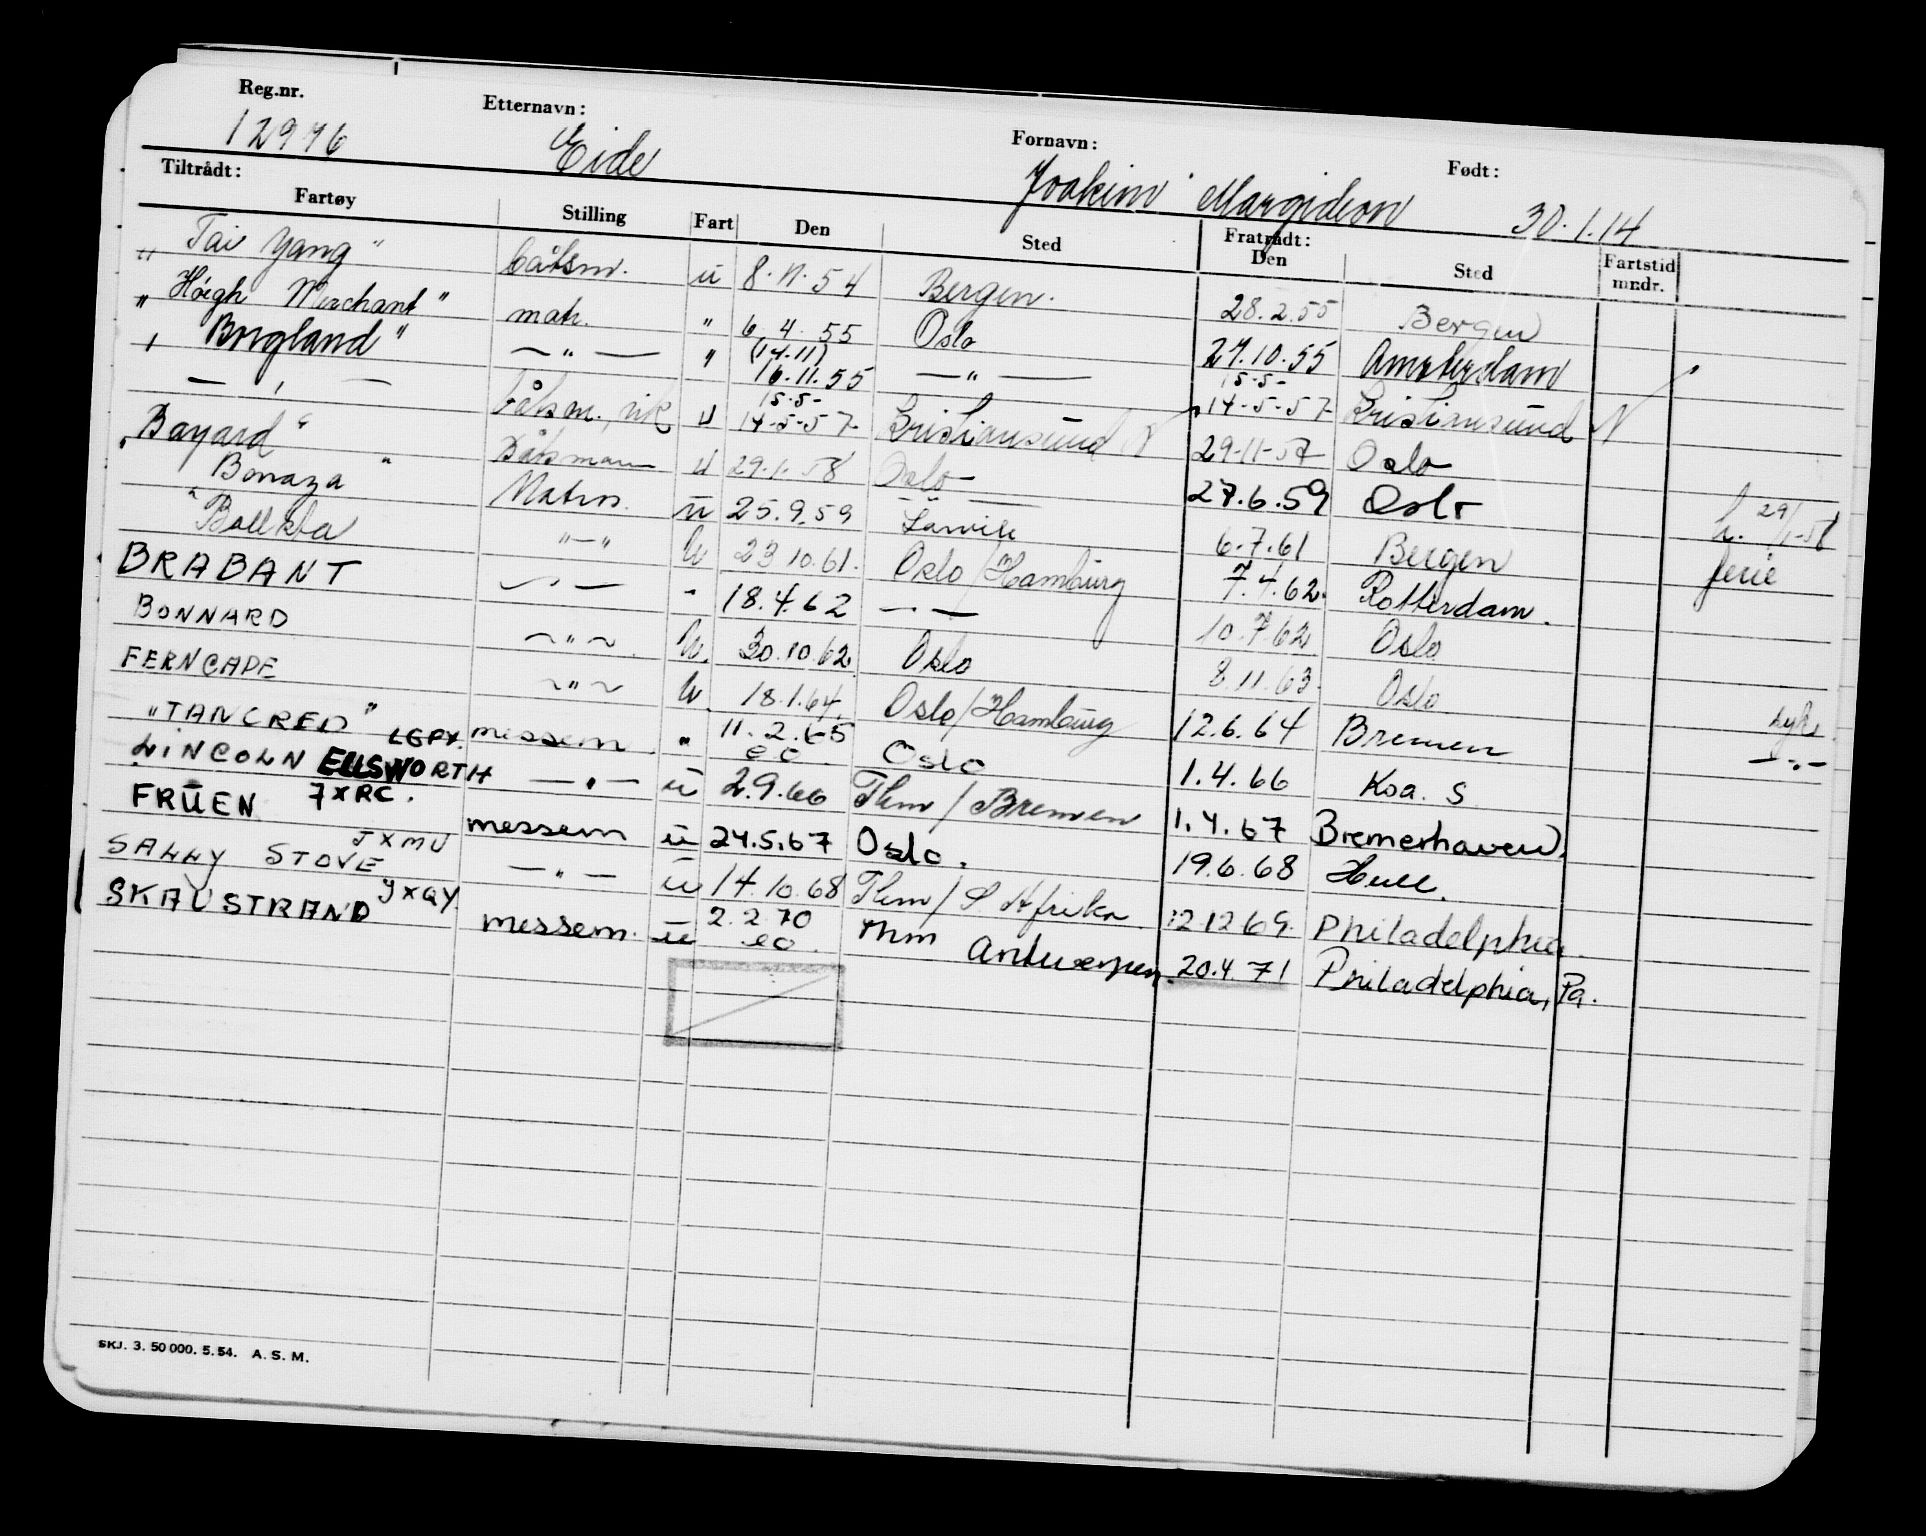 Reg.nr. Etternavn: Fornavn: Født:
12976 Eide Joakim Margideon 30.1.14
Tiltrådt: Fratrådt:
Fartøy Stilling Fart Den Sted Den Sted Fartstid mndr.
"Tai Yang" båtsm. u 8.11.54 Bergen. 28.2.55 Bergen
"Höegh Merchant" matr. " 6.4.55 Oslo 27.10.55 Amsterdam
"Borgland" —"— " (14.11) 16.11.55 —"— 15.5- 14-5-57 Kristiansund N
— " — båtsm., vik u 15.5- 14-5-57 Kristiansund N 29-11-57 Oslo
"Bayard" Båtsmann u 29.1.58 Oslo 27.6.59 Oslo 29/1-58
"Bonaza" Matros u 25.9.59 Larvik 6.7.61 Bergen ferie
"Baltkta "—" u 23.10.61. Oslo/Hamburg 7.4.62. Rotterdam.
BRABANT —"— " 18.4.62 —"— 10.7.62 Oslo
BONNARD ~"~ u. 30.10.62 Oslo 8.11.63. Oslo
FERNCAPE ~"~ u. 18.1.64. Oslo/Hamburg 12.6.64 Bremen syk.
"TANCRED" LGPY. messem. " 11.2.65 eo. Oslo 1.4.66 Koa. S —"—
LINCOLN ELLSWORTH —"— u 2.9.66 Thm/Bremen 1.4.67 Bremerhaven.
FRUEN 7XRC. messem u 24.5.67 Oslo. 19.6.68 Hull.
SALLY STOVE JXMU —"— u 14.10.68 Thm/S. Afrika 12.12.69. Philadelphia.
SKAUSTRAND JXQY. messem. u 2.2.70 eo. Thm Antwerpen. 20.4.71 Philadelphia, Pa.
SKJ. 3. 50 000. 5. 54. A. S. M.